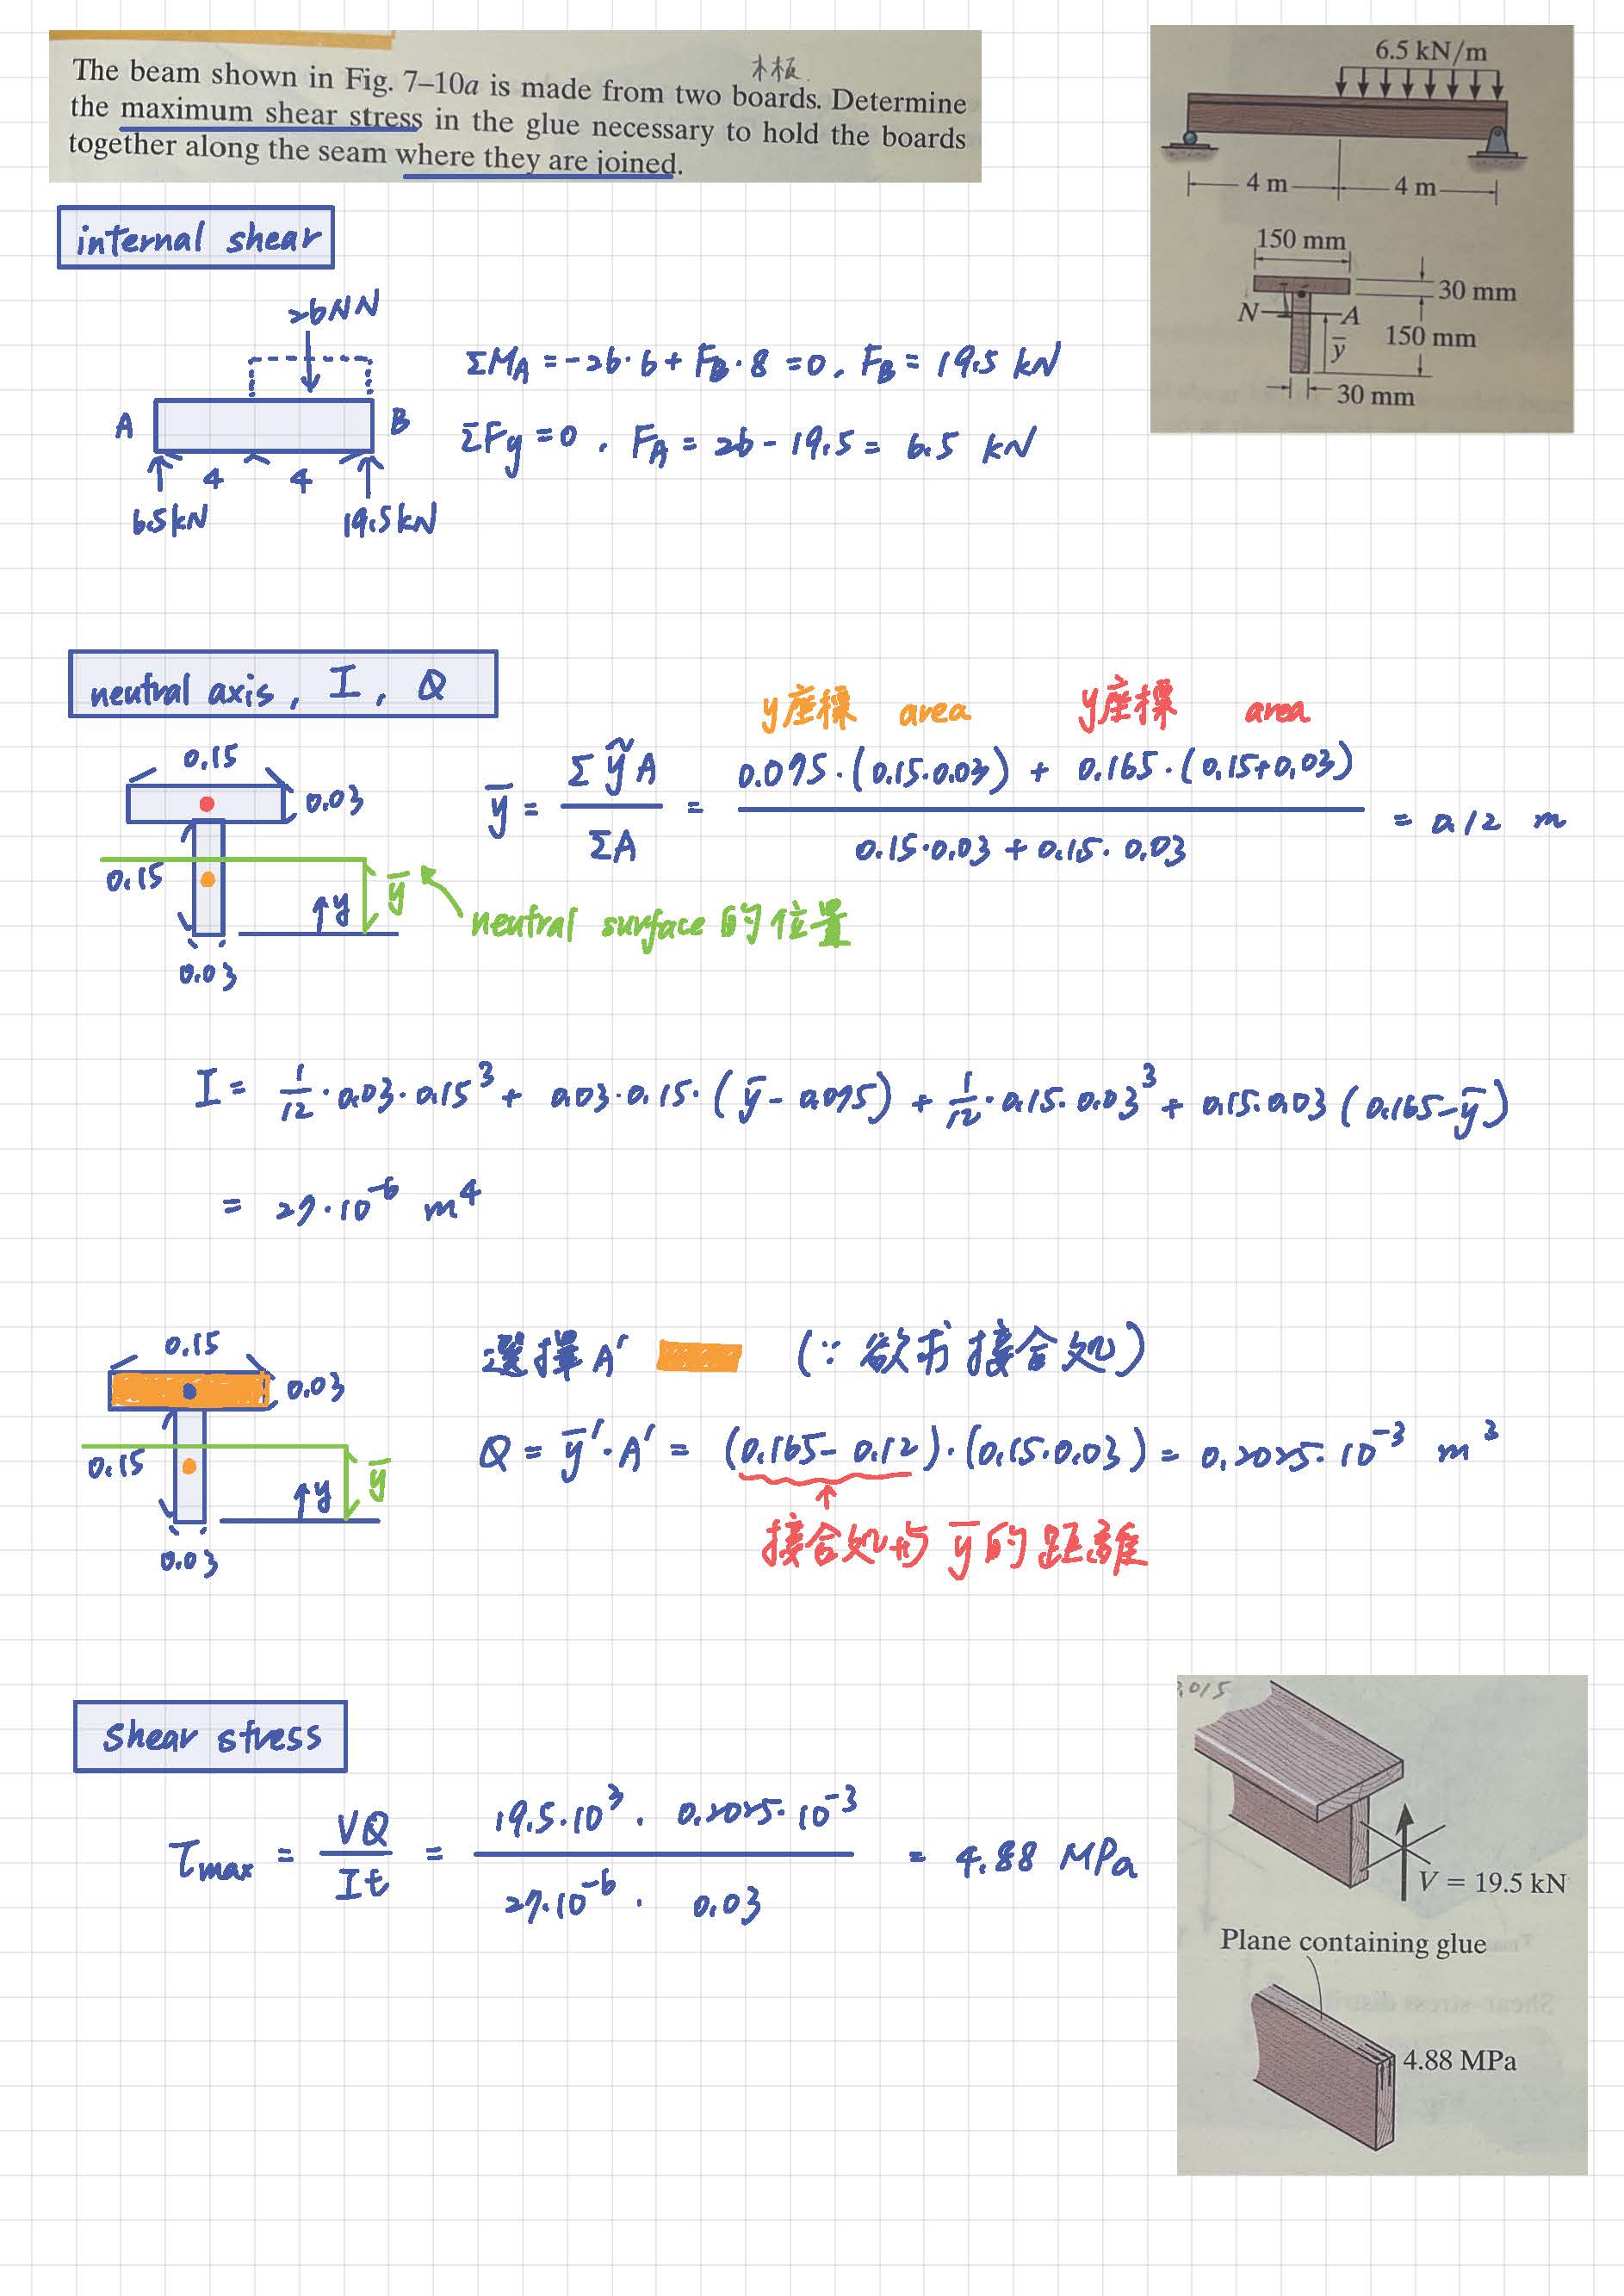 The beam shown in Fig. 7–10a is made from two boards. Determine
木板
the maximum shear stress in the glue necessary to hold the boards
together along the seam where they are joined.
6.5 kN/m
4 m
4 m
150 mm
30 mm
N
A
150 mm
y̅
30 mm
internal shear
26NN
A
B
4
4
6.5kN
19.5kN
ΣM_A = -26·6 + F_B·8 = 0, F_B = 19.5 kN
ΣFy = 0, F_A = 26 - 19.5 = 6.5 kN
neutral axis, I, Q
0.15
0.03
0.15
↑y
y̅
0.03
neutral surface的位置
y座標 area y座標 area
y̅ = ΣỹA / ΣA = 0.075·(0.15·0.03) + 0.165·(0.15+0.03) / 0.15·0.03 + 0.15·0.03 = 0.12 m
I = 1/12·0.03·0.15³ + 0.03·0.15·(y̅ - 0.075) + 1/12·0.15·0.03³ + 0.15·0.03(0.165-y̅)
= 27·10⁻⁶ m⁴
0.15
0.03
0.15
↑y
y̅
0.03
選擇A' (∵ 欲求接合処)
Q = y̅'·A' = (0.165 - 0.12)·(0.15·0.03) = 0.2025·10⁻³ m³
接合処与y̅的距離
shear stress
τmax = VQ / It = 19.5·10³ · 0.2025·10⁻³ / 27·10⁻⁶ · 0.03 = 4.88 MPa
V = 19.5 kN
Plane containing glue
4.88 MPa